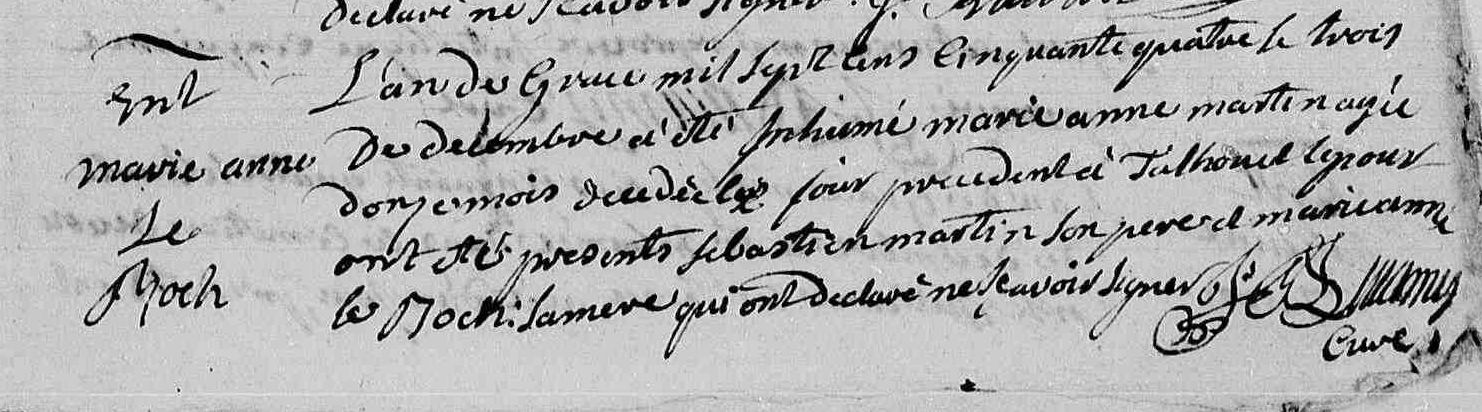 declaré ne scavoir signer.
Ent
marie anne
Le
Roch
L'an de Grace mil sept cens Cinquante quatre le trois
De decembre a été Inhumé marie anne martin agée
donze mois decedée le jour precedent a Talhouet le jour
ont été presents sebastien martin son pere et marie anne
le Roch: sa mere qui ont declaré ne scavoir signer
Curé